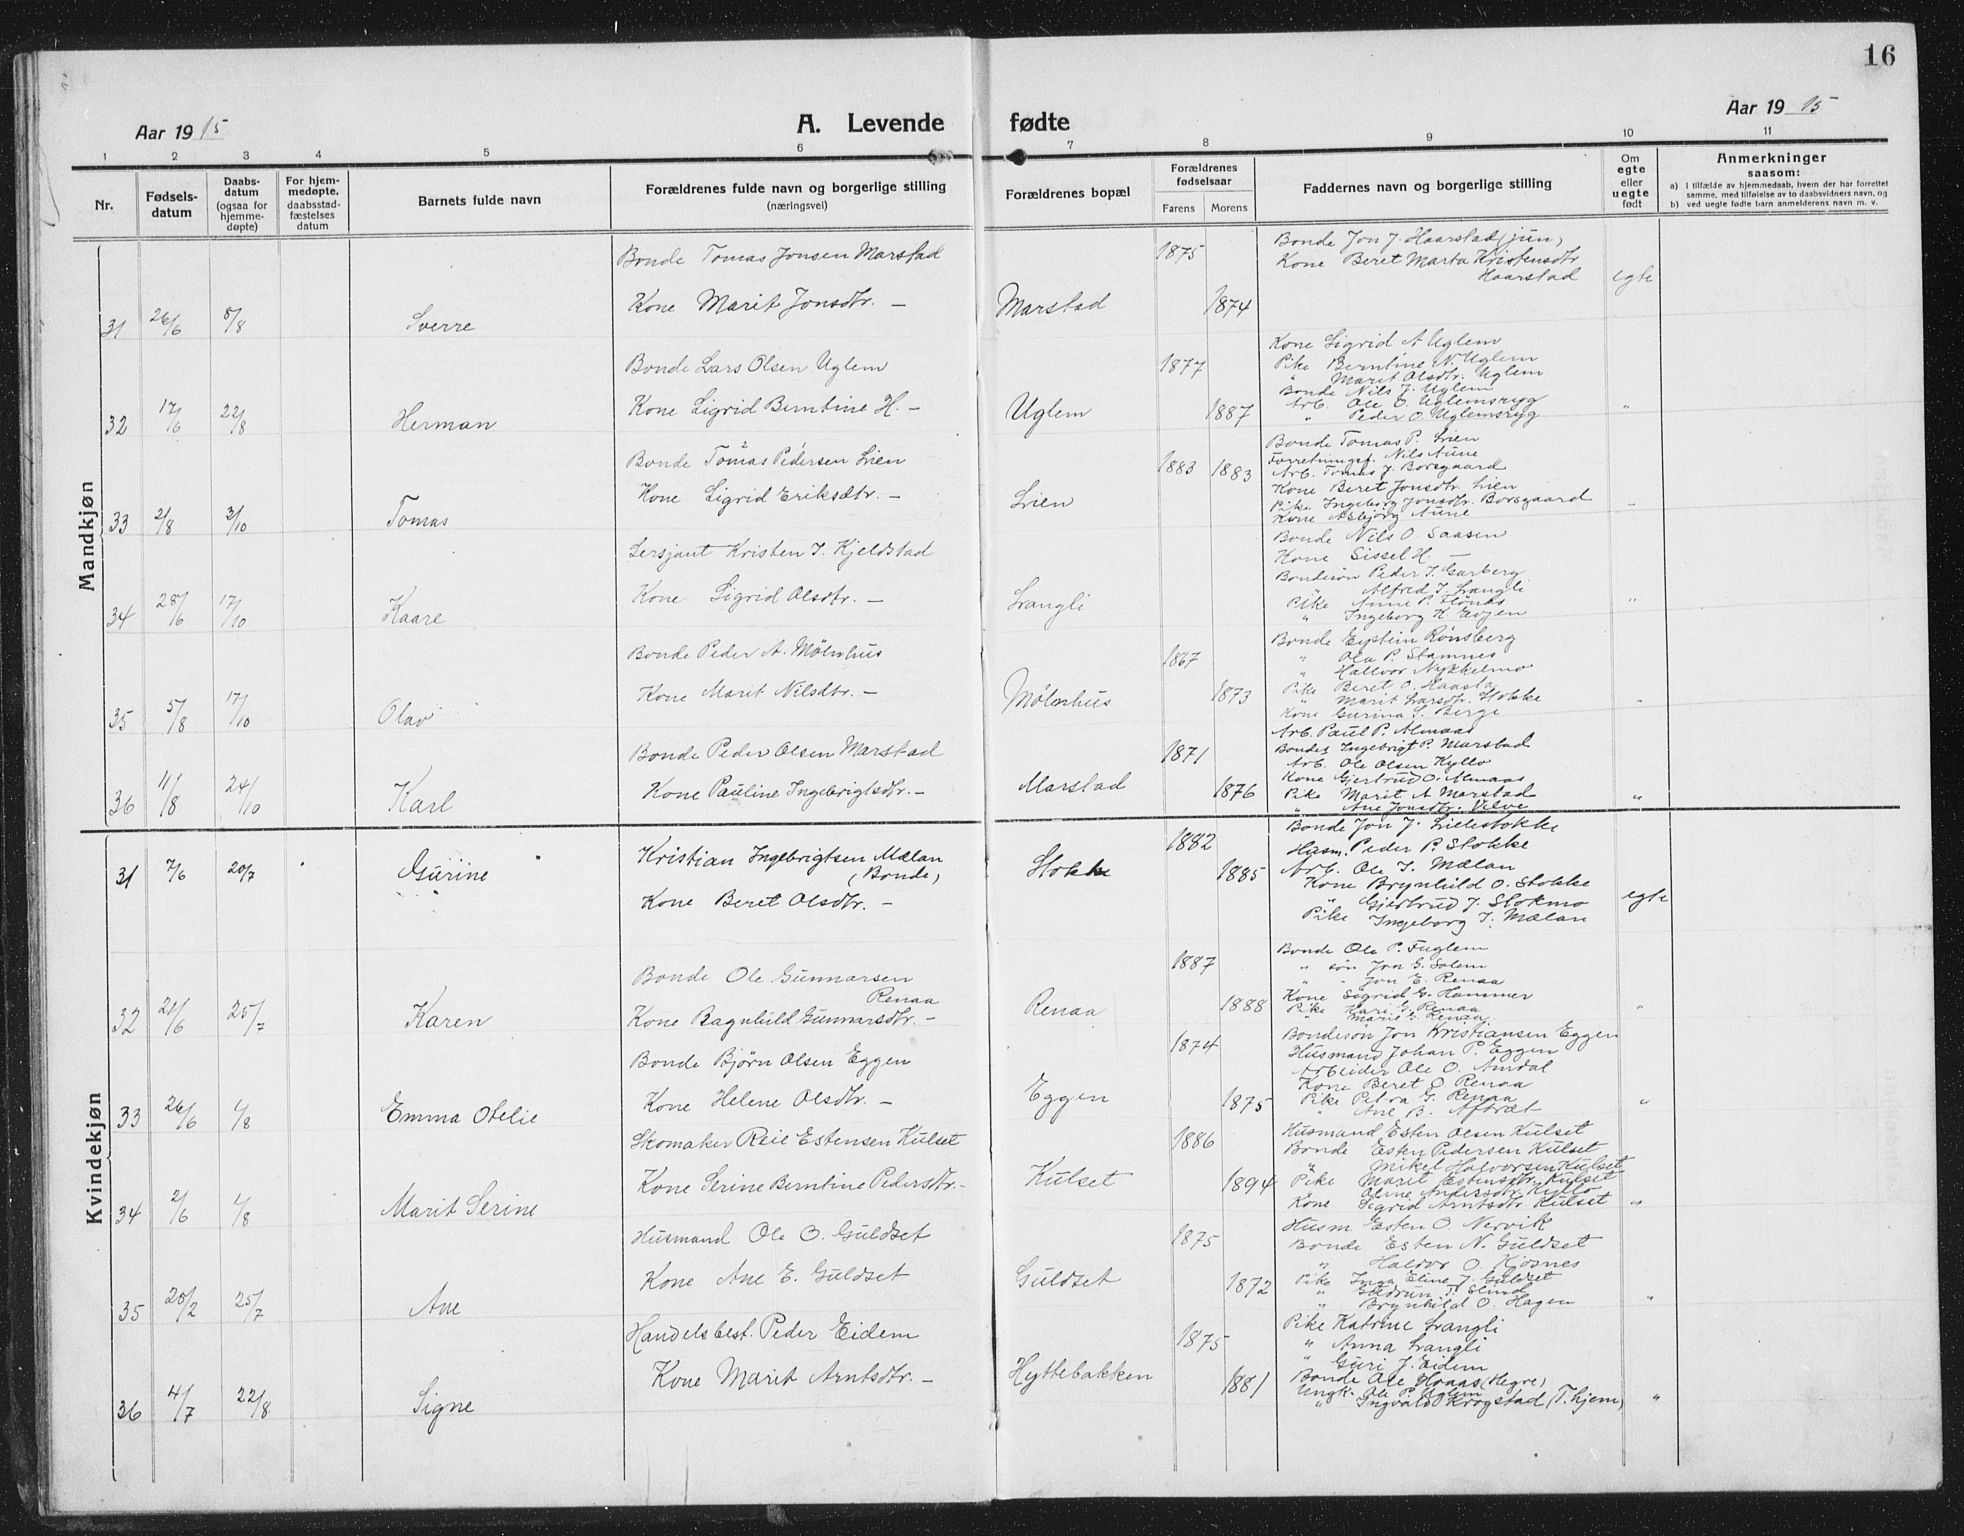 16
Aar 1915
A. Levende fødte
Aar 1915
1 2 3 4 5 6 7 8 9 10 11
Nr.
Fødsels-
datum
Daabs-
datum
(ogsaa for
hjemme-
døpte)
For hjem-
medøpte,
daabsstad-
fæstelses
datum
Barnets fulde navn
Forældrenes fulde navn og borgerlige stilling
(næringsvei)
Forældrenes bopæl
Forældrenes
fødselsaar
Farens Morens
Faddernes navn og borgerlige stilling
Om
egte
eller
uegte
født
Anmerkninger
saasom:
a) I tilfælde av hjemmedaab, hvem der har forrettet
samme, med tilføielse av to daabsvidners navn, og
b) ved uegte fødte barn anmelderens navn m. v.
Mandkjøn
31 26/6 8/8 Sverre
Bonde Tomas Jonsen Marstad
Kone Marit Jonsdtr. —
Marstad 1875 1874
Bonde Jon J. Haarstad (jun)
Kone Beret Marta Kristensdtr
Haarstad
egte
32 17/6 22/8 Herman
Bonde Lars Olsen Uglem
Kone Sigrid Berntine H. —
Uglem 1877 1887
Kone Sigrid A Uglem
Pike Berntine N. Uglem
" Marit Olsdtr. Uglem
Bonde Nils J. Uglem
Arb. Ole O. Uglemsryg
" Peder O. Uglemsryg
"
33 2/8 3/10 Tomas
Bonde Tomas Pedersen Lien
Kone Sigrid Eriksdtr. —
Lien 1883 1883
Bonde Tomas P. Lien
Forretningsf. Nils Aune
Arb. Tomas J. Borsgaard
Kone Beret Jonsdtr. Lien
Pike Ingeborg Jonsdtr. Borsgaard
Kone Asbjørg Aune
"
34 28/6 17/10 Kaare
Sersjant Kristen J. Kjeldstad
Kone Sigrid Olsdtr. —
Langli
Bonde Nils O. Saasen
Kone Sissel H. —
Bondesøn Peder J. Garberg
" Alfred J. Langli
Pike Anne P. Flønes
" Ingeborg K. Evjen
"
35 5/8 17/10 Olav
Bonde Peder A. Mølnhus
Kone Marit Nilsdtr. —
Mølnhus 1867 1873
Bonde Eystein Rønsberg
" Ola P. Stamnes
" Hallvor Nykkelmo
Pike Beret O. Haasta
" Marit Larsdtr. Stokke
Kone Gurina S. Berge
"
36 11/8 24/10 Karl
Bonde Peder Olsen Marstad
Kone Pauline Ingebrigtsdtr. —
Marstad 1871 1876
Arb. Paul P. Almaas
Bondes Ingebrigt P. Marstad
Arb. Ole Olsen Kyllo
Kone Gjertrud O. Almaas
Pike Marit A Marstad
" Ane Jonsdtr. Vilve
"
Kvindekjøn
31 7/6 20/7 Gurine
Kristian Ingebrigtsen Mælan
(Bonde)
Kone Beret Olsdtr. —
Stokke 1882 1885
Bonde Jon J. Lillestokke
Husm. Peder P. Stokke
Arb. Ole I. Mælan
Kone Brynhild O. Stokke
" Gjertrud J. Stokmo
Pike Ingeborg I. Mælan
egte
32 21/6 25/7 Karen
Bonde Ole Gunnarsen
Renaa
Kone Ragnhild Gunnarsdtr. —
Renaa 1887 1888
Bonde Ole P. Fuglem
" søn Jon G. Solem
" " Jon E. Renaa
Kone Sigrid G. Hammer
Pike Kari G. Renaa
Marie G. Renaa
"
33 26/6 1/8 Emma Otelie
Bonde Bjørn Olsen Eggen
Kone Helene Olsdtr. —
Eggen 1874 1875
Bondesøn Jon Kristiansen Eggen
Husmand Johan P. Eggen
Arbeider Ole O. Amdal
Kone Beret O. Renaa
Pike Petra G. Renaa
" Ane B. Aftræt
"
34 2/6 1/8 Marit Serine
Skomaker Reie Estensen Kulset
Kone Serine Berntine Pedersdtr. —
Kulset 1886 1894
Husmand Esten Olsen Kulset
Bonde Esten Pedersen Kulset
" Mikel Halvorsen Kulset
Pike Marit Estensdtr. Kulset
Oline Andersdtr. Kyllo
Kone Sigrid Arntsdtr. Kulset
"
35 20/2 25/7 Ane
Husmand Ole O. Guldset
Kone Ane E. Guldset
Guldset 1875 1872
Husm. Esten O. Nervik
Bonde Esten N. Guldset
" Halvor O. Kjøsnes
Pike Inga Eline J. Guldset
" Gudrun T. Slind
" Brynhild O. Hagen
"
36 4/7 22/8 Signe
Handelsbest. Peder Eidem
Kone Marit Arntsdtr. —
Hyttebakken 1875 1881
Pike Katrine Langli
" Anna Langli
" Guri J. Eidem
Bonde Ole Hraas (Hegre)
Ungk. Ole P. Uglem
" Ingvald Krogstad (T.hjem)
"